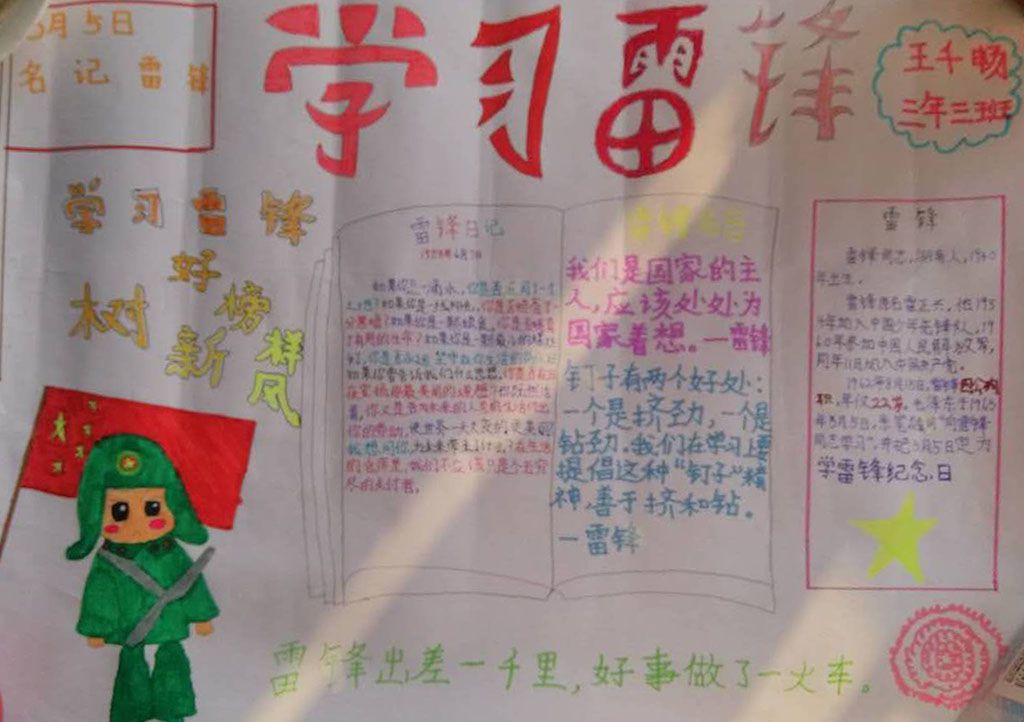 3月5日
名记雷锋
学习雷锋
王千畅
三年三班
学习雷锋
好
树榜
新样
风
雷锋日记
1958年6月7日
如果你是一滴水,你是否滋润了一寸
土地?如果你是一线阳光,你是否照亮了一
分黑暗?如果你是一颗粮食,你是否哺育了
有用的生命?如果你是一颗最小的螺丝
钉,你是否永远坚守在你生活的岗位?
如果你要告诉我们什么思想,你是否在日
夜宣扬那最美丽的理想?你既然活
着,你又是否为未来的人类的生活付出
你的劳动,使世界一天天变的更美丽?
我想问你,为未来带来了什么?在生活
的仓库里,我们不应该只是个无穷
尽的支付者。
雷锋名言
我们是国家的主
人,应该处处为
国家着想。一雷锋
钉子有两个好处:
一个是挤劲,一个是
钻劲。我们在学习上要
提倡这种“钉子”精
神,善于挤和钻。
一雷锋
雷锋
雷锋同志,湖南人,1940
年出生。
雷锋原名雷正兴,他195
4年加入中国少年先锋队,19
60年参加中国人民解放军,
同年11月加入中国共产党。
1962年8月15日,雷锋因公殉
职,年仅22岁。毛泽东于1963
年3月5日,亲笔题词“向雷锋
同志学习”,并把3月5日定为
学雷锋纪念日
雷锋出差一千里,好事做了一火车。